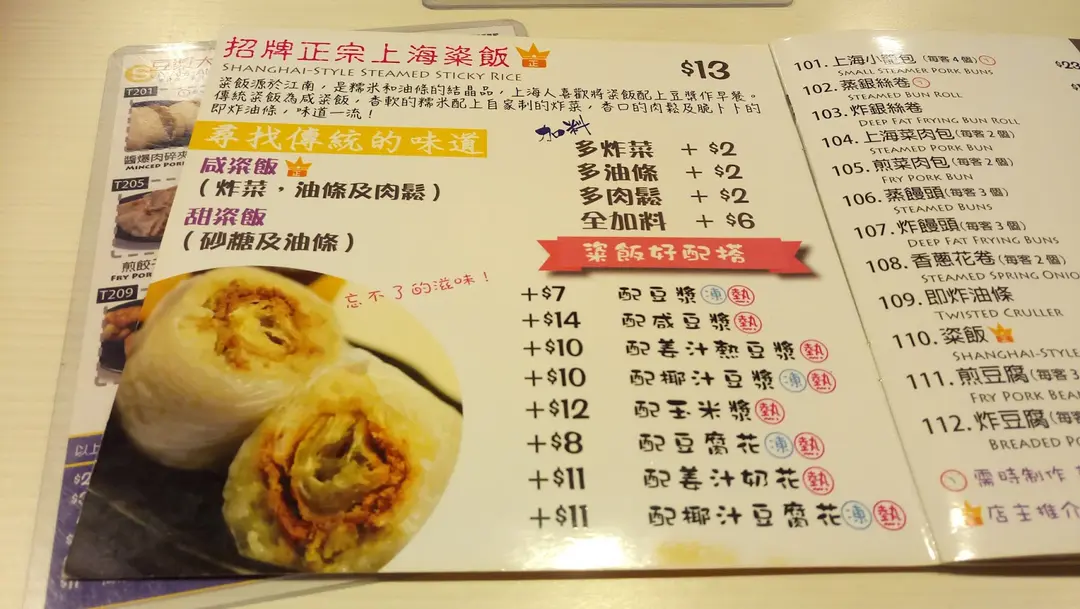 招牌正宗上海粢飯 正
SHANGHAI-STYLE STEAMED STICKY RICE
$13
粢飯源於江南，是糯米和油條的結晶品，上海人喜歡將粢飯配上豆漿作早餐。
傳統粢飯為咸粢飯，香軟的糯米配上自家制的炸菜，香口的肉鬆及脆卜卜的
即炸油條，味道一流！
尋找傳統的味道
咸粢飯 正
（炸菜，油條及肉鬆）
甜粢飯
（砂糖及油條）
忘不了的滋味！
加料
多炸菜 + $2
多油條 + $2
多肉鬆 + $2
全加料 + $6
粢飯好配搭
+$7 配豆漿 凍 熱
+$14 配咸豆漿 熱
+$10 配姜汁熱豆漿 熱
+$10 配椰汁豆漿 凍 熱
+$12 配玉米漿 熱
+$8 配豆腐花 凍 熱
+$11 配姜汁奶花 熱
+$11 配椰汁豆腐花 凍 熱
101. 上海小籠包（每客4個）
SMALL STEAMER PORK BUNS
102. 蒸銀絲卷
STEAMED BUN ROLL
103. 炸銀絲卷
DEEP FAT FRYING BUN ROLL
104. 上海菜肉包（每客2個）
STEAMED PORK BUN
105. 煎菜肉包（每客2個）
FRY PORK BUN
106. 蒸饅頭（每客3個）
STEAMED BUNS
107. 炸饅頭（每客3個）
DEEP FAT FRYING BUNS
108. 香蔥花卷（每客2個）
STEAMED SPRING ONIO
109. 即炸油條
TWISTED CRULLER
110. 粢飯
SHANGHAI-STYLE
111. 煎豆腐（每客3
FRY PORK BEAN
112. 炸豆腐（每客
BREADED PO
需時制作
店主推介
T201
醬爆肉碎夾
MINCED PORK
T205
煎餃子
FRY POR
T209
以上